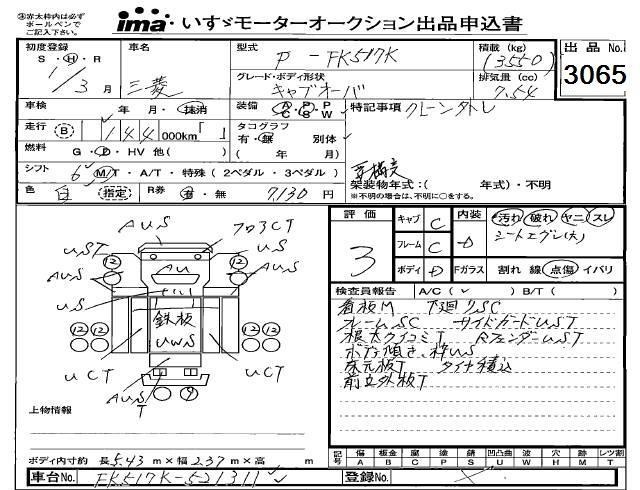 ④赤太枠内は必ず
ボールペンで
ご記入下さい
ima いすゞモーターオークション出品申込書
初度登録
S・H・R
1/3月
車名
三菱
型式
P-FK517K
積載(kg)
(3550)
グレード・ボディ形状
キャブオーバ
排気量(cc)
7.54
出品No.
3065
車検 年 月・抹消
装備 A・P・P
C S W
特記事項
クレーン
走行 B 144 000km「 」
タコグラフ
有・無 別体
( 年 月)
燃料 G・D・HV 他( )
シフト 6 M/T・A/T・特殊(2ペダル・3ペダル)
架装物年式:( 年式)・不明
※不明の場合は、不明に○をする。
色 白 指定
R券 有・無 7130円
AUS
フロアCT
UST
AUS
US
AU
US
AUS
12
12
12 12
12 12
鉄板
UWS
UCT
UCT
AUS
T
9
上物情報
評価
3
キャブ C
フレーム C
ボディ D
内装 D
Fガラス
汚れ 破れ ヤニ スレ
シートエグレ(大)
割れ 線 点傷 イバリ
検査員報告 A/C( ✓ ) B/T( )
看板M 下廻りSC
フレームSC サイドガードUST
根太クイコミT RフェンダーUST
ボデー傾き、枠US
床元板T タイヤ積込
前立外板T
記号
傷 板金 腐 塗 錆 凹凸曲 波 穴 跡 レツ割
A B C P S U W H M T
ボディ内寸約 長5.43m×幅2.37m×高 m
車台No. FK517K-521311
登録No.